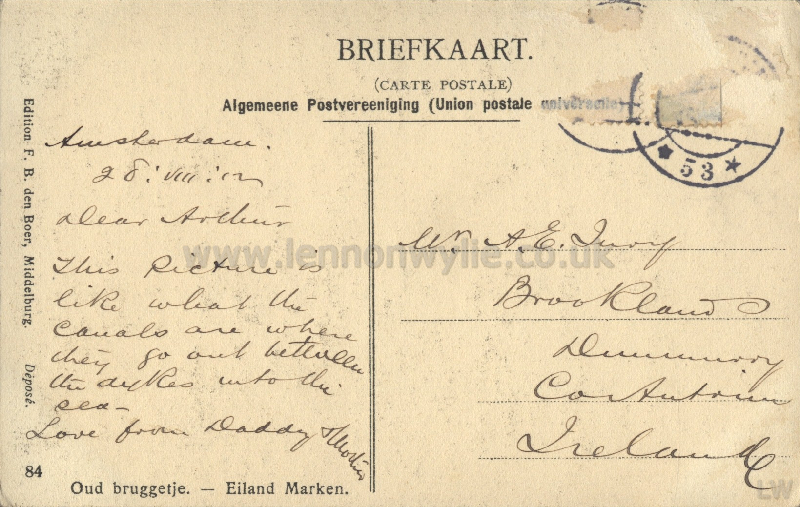 BRIEFKAART.
(CARTE POSTALE)
Algemeene Postvereeniging (Union postale universelle)
Edition F. B. den Boer, Middelburg. Déposé.
Amsterdam.
28 : VIII : 12
Dear Arthur
This picture is
like what the
canals are where
they go out between
the dykes into the
sea -
Love from Daddy & Mother
84
Oud bruggetje. — Eiland Marken.
53
Mr. A.E.
Brookland
Dunmurry
Co Antrim
Ireland
www.lennonwylie.co.uk
LW